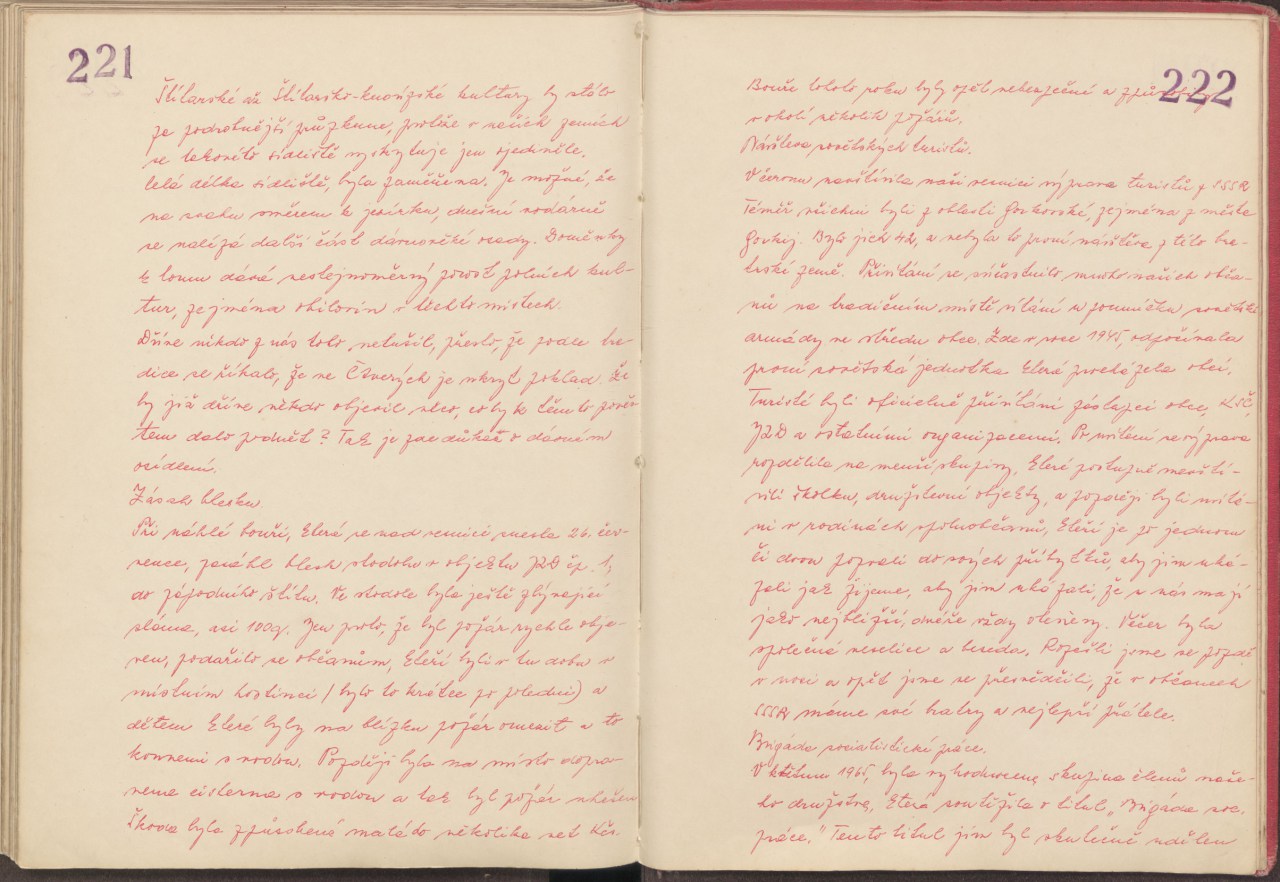 221
Štítarské až štítarsko-knovízské kultury by stálo
za podrobnější průzkum, protože v našich zemích
se takovéto sídliště vyskytuje jen ojediněle.
celá délka sídliště, byla zaměřena. Je možné, že
na svahu směrem k jezírku, dnešní vodárně
se nalézá další část dávnověké osady. Domněnky
k tomu dává nestejnoměrný porost polních kul-
tur, zejména obilovin v těchto místech.
Dříve nikdo z nás toto netušil, přesto, že podle tra-
dice se říkalo, že ve Čtverých je ukryt poklad. Že
by již dříve někdo objevil něco, co by k těmto pověs-
tem dalo podnět? Tak je zde důkaz o dávném
osídlení.
Zásah blesku
Při náhlé bouři, která se nad vesnicí snesla 26. čer-
vence, zasáhl blesk stodolu v objektu JZD čp. 1,
do západního štítu. Ve stodole byla ještě zbývající
sláma, asi 100q. Jen proto, že byl požár rychle obje-
ven, podařilo se občanům, kteří byli v tu dobu v
místním hostinci (bylo to krátce po poledni) a
dětem které byly na blízku požár omezit a to
konvemi s vodou. Později byla na místo dopra-
vena cisterna s vodou a tak byl požár uhašen
Škoda byla způsobená malá do několika set Kčs.
222
Bouře tohoto roku byly opět nebezpečné a způsobily
v okolí několik požárů.
Návštěva sovětských turistů.
V červnu navštívila naši vesnici výprava turistů z SSSR
Téměř všichni byli z oblasti Gorkovské, zejména z města
Gorkij. Bylo jich 42, a nebyla to první návštěva z této bra-
trské země. Přivítání se súčastnilo mnoho našich obča-
nů na tradičním místě vítání u pomníčku sovětské
armády ve středu obce. Zde v roce 1945, odpočívala
první sovětská jednotka která procházela obcí.
Turisté byli oficielně přivítáni zástupci obce, KSČ,
JZD a ostatními organizacemi. Po uvítání se výprava
rozdělila na menší skupiny, které postupně navští-
vili školku, družstevní objekty, a později byli uvítá-
ni v rodinách spoluobčanů, kteří je po jednom
či dvou pozvali do svých příbytků, aby jim uká-
zali jak žijeme, aby jim ukázali, že u nás mají
jako nejbližší, dveře vždy otevřeny. Večer byla
společná veselice a beseda. Rozešli jsme se pozdě
v noci a opět jsme se přesvědčili, že v občanech
SSSR máme své bratry a nejlepší přátele.
Brigáda socialistické práce.
V květnu 1965, byla vyhodnocena skupina členů naše-
ho družstva, která soutěžila o titul „Brigáda soc.
práce.“ Tento titul jim byl skutečně udělen